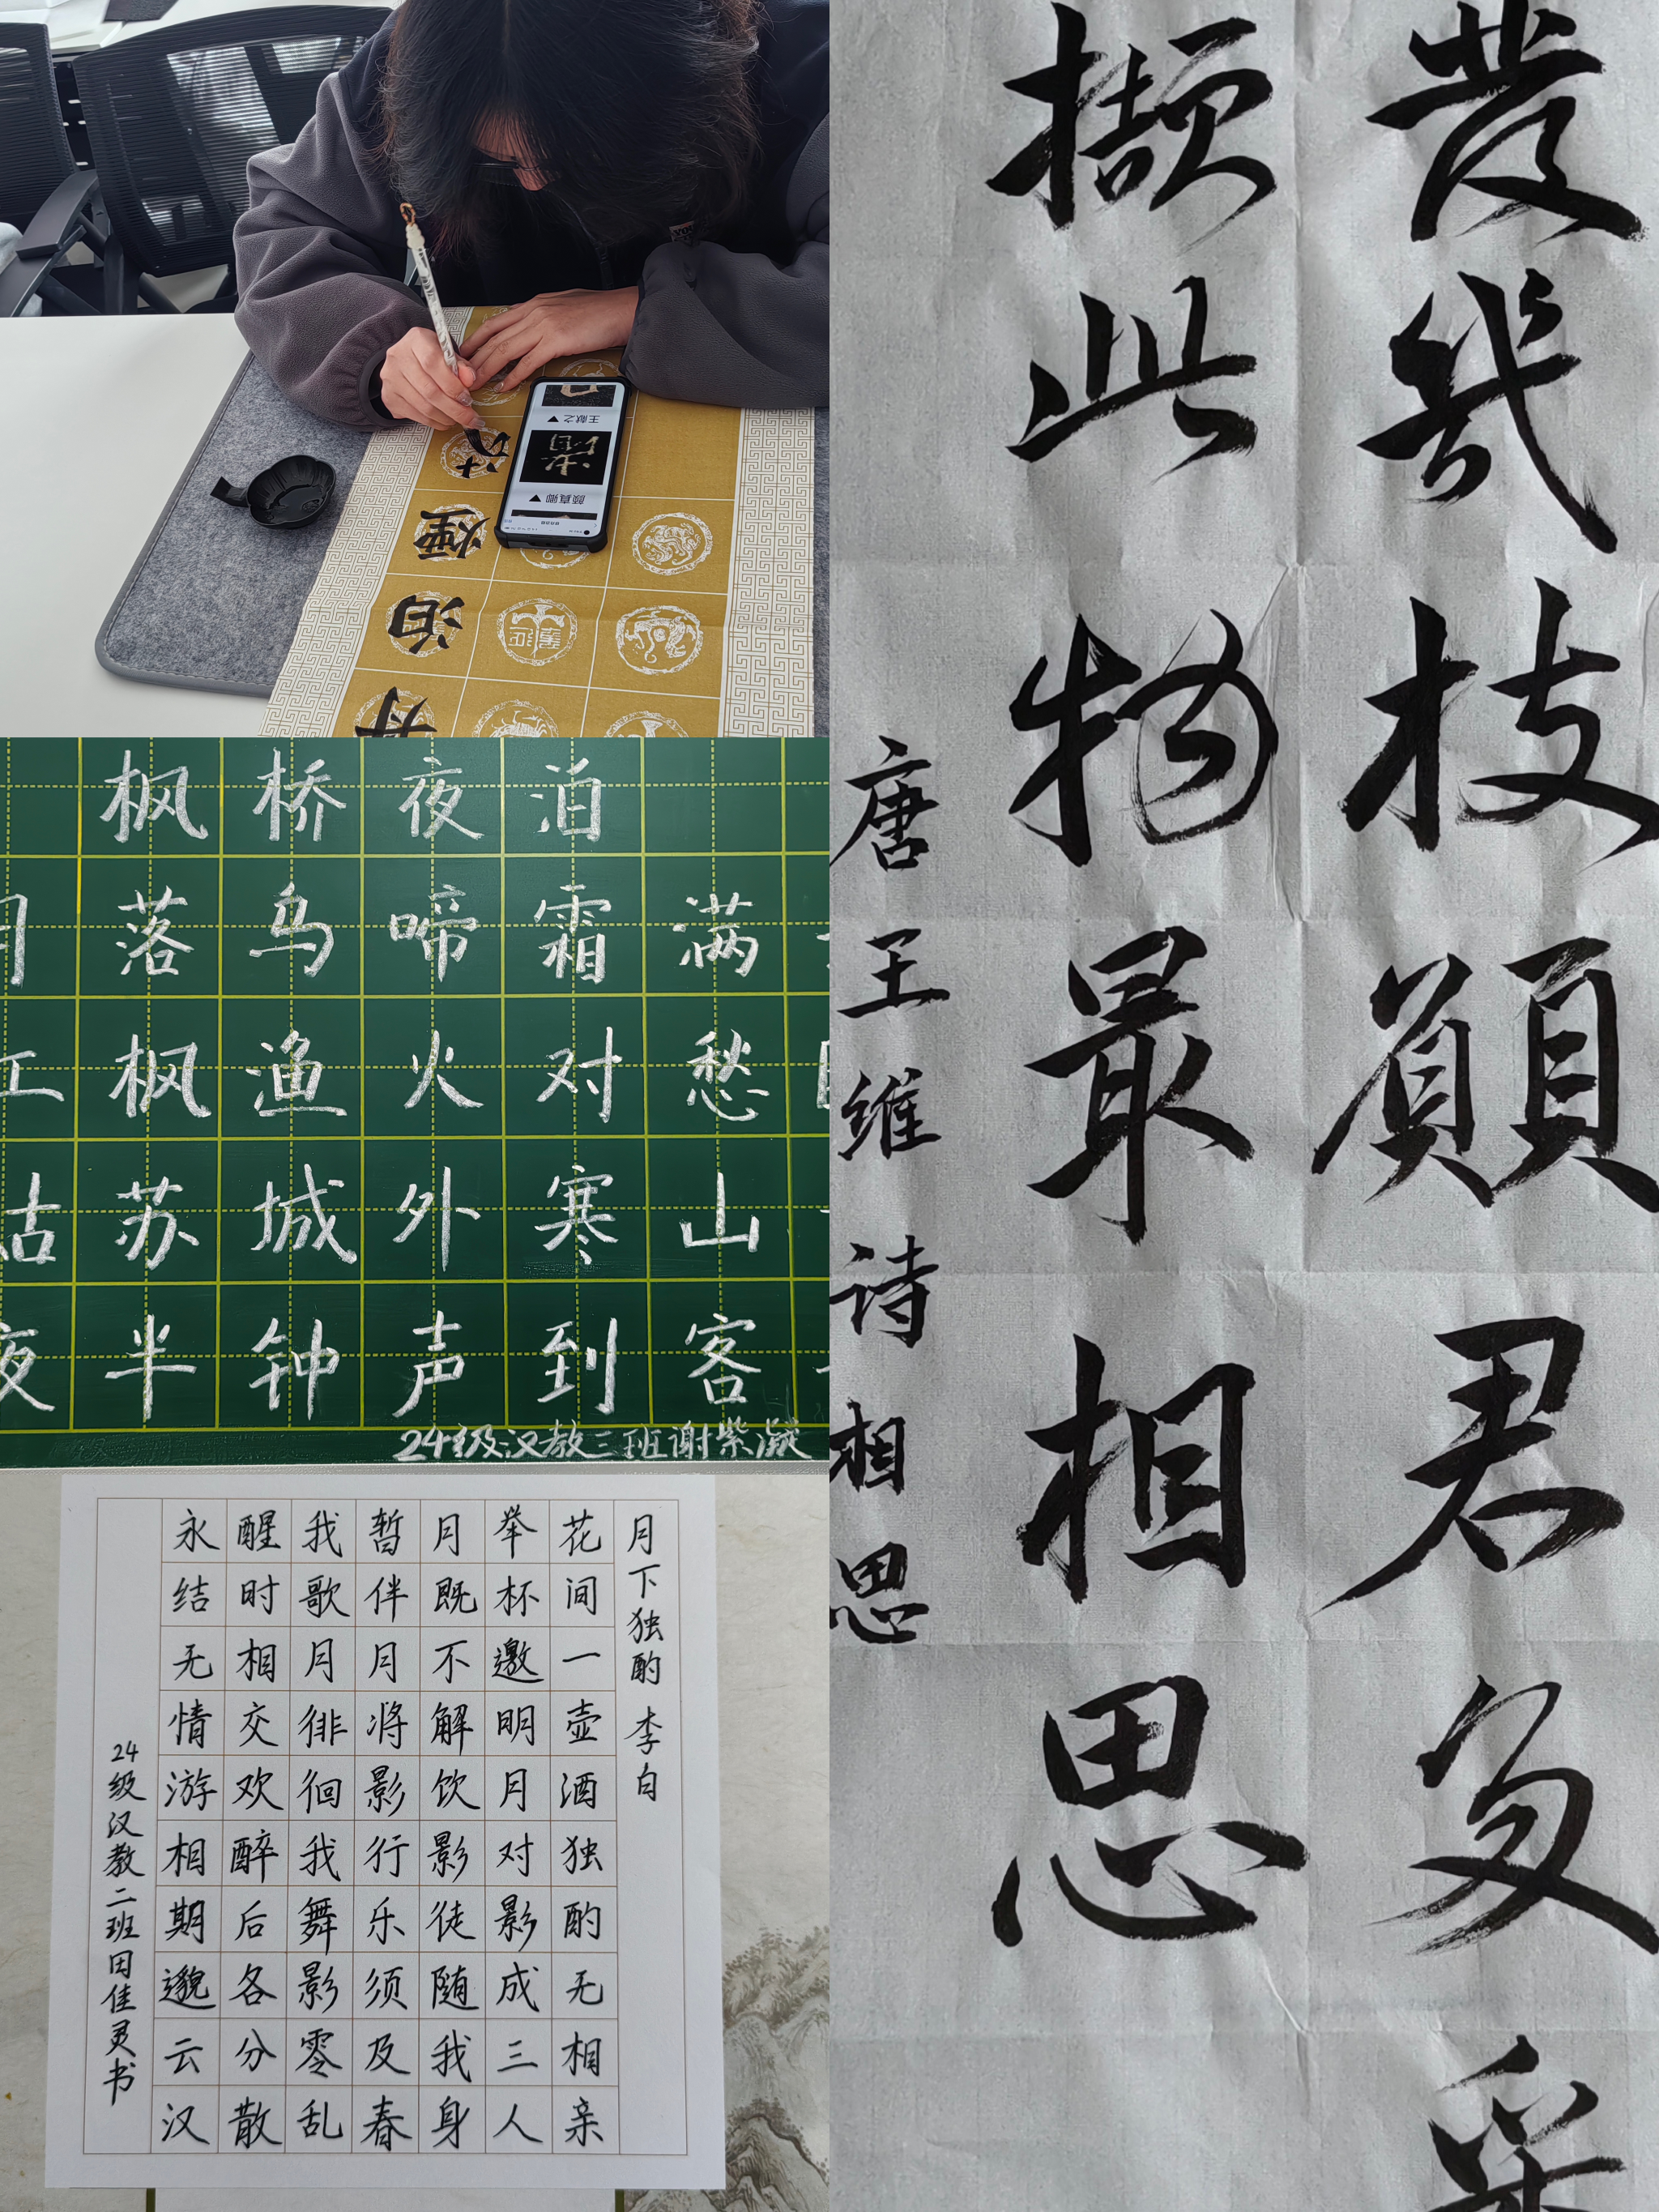 舟泊煙
王献之▼
渚
颜真卿▼
枫桥夜泊
落乌啼霜满
枫渔火对愁
姑苏城外寒山
夜半钟声到客
24级汉教三班谢紫凝
月下独酌 李白
花间一壶酒独酌无相亲
举杯邀明月对影成三人
月既不解饮影徒随我身
暂伴月将影行乐须及春
我歌月徘徊我舞影零乱
醒时相交欢醉后各分散
永结无情游相期邈云汉
24级汉教二班田佳灵书
發幾枝願君多采
擷此物最相思
唐王维诗相思